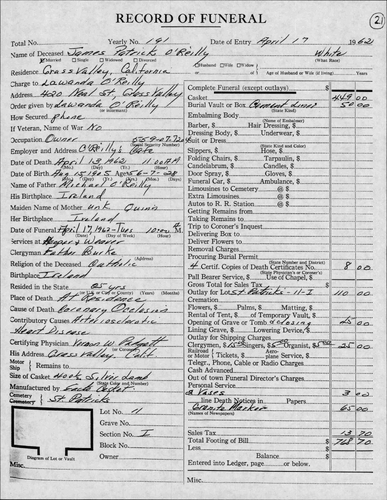 RECORD OF FUNERAL
2
Total No. Yearly No. 191 Date of Entry April 17 1962
Name of Deceased James Patrick O'Reilly White
Married Single Widowed Divorced (What Race)
Residence Grass Valley, California Husband Wife Widow of Age of Husband or Wife (if living) Years
Charge to Lawanda O'Reilly
Address 420 Neal St. Grass Valley
Order given by Lawanda O'Reilly
How Secured phone
If Veteran, Name of War No
Occupation Owner
Employer and Address O'Reilly's
Date of Death April 13, 1962 11:00 A
Date of Birth Aug 15 1905 Age 56-7-28
Name of Father Michael O'Reilly
His Birthplace Ireland
Maiden Name of Mother unk Quinn
Her Birthplace Ireland
Date of Funeral April 17, 1962-Tues 10:00 A M
Services at Hooper & Weaver
Clergyman Father Burke
Religion of the Deceased Catholic
Birthplace Ireland
Resided in the State 25 yrs
Place of Death At Residence
Cause of Death Coronary Occlusion
Contributory Causes Arteriosclerotic
Heart Disease
Certifying Physician Vernon W. Padgett
His Address Grass Valley, Calif
Motor
Ship Remains to
Size of Casket
Manufactured by
Cemetery St. Patricks
Crematory
Lot No. 11
Grave No.
Section No. I
Block No.
Owner
Diagram of Lot or Vault
Misc.
Complete Funeral (except outlays) $
Casket 449 00
Burial Vault or Box Cement Liner 50 00
(State Kind)
Embalming Body
Barber, $ Hair Dressing, $
Dressing Body, $ Underwear, $
Suit or Dress
(State Kind and Color)
Slippers, $ Hose, $
Folding Chairs, $ Tarpaulin, $
Candelabrum, $ Candles, $
Door Spray, $ Gloves, $
Funeral Car, $ Ambulance, $
Limousines to Cemetery @ $
Extra Limousines @ $
Autos to R. R. Station @ $
Getting Remains from
Taking Remains to
Trip to Coroner's Inquest
Delivering Box to
Deliver Flowers to
Removal Charges
Procuring Burial Permit
(State Number and District)
4 Certif. Copies of Death Certificates No. 8 00
(State Physician's or Coroner's)
Pall Bearer Service, $ Use of Chapel, $
Gross Total for Sales Tax $
Outlay for Lot St. Patricks-11-I 110 00
Cremation
Flowers, $ Palms, $ Matting, $
Rental of Tent, $ of Temporary Vault, $
Opening of Grave or Tomb & closing 25 00
Lining Grave, $ Lowering Device, $
Outlay for Shipping Charges
Clergyman, $ Singers, $ Organist, $ 25 00
Railroad Aero-
or Motor Tickets, $ plane Service, $
Telegr., Phone, Cable or Radio Charges
Cash Advanced
Out of town Funeral Director's Charges
Personal Service
2 Vases 3 00
line Death Notices in Papers
Granite Marker 65 00
(Names of Newspapers)
Sales Tax 13 70
Total Footing of Bill $ 768 70
Less $
Balance $
Entered into Ledger, page or below.
Misc.